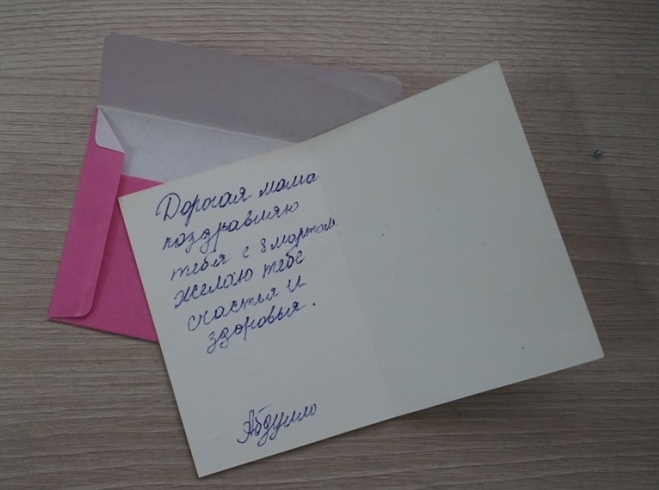 Дорогая мама
поздравляю
тебя с 8 мартом
желаю тебе
счастья и
здоровья.
Абдулло